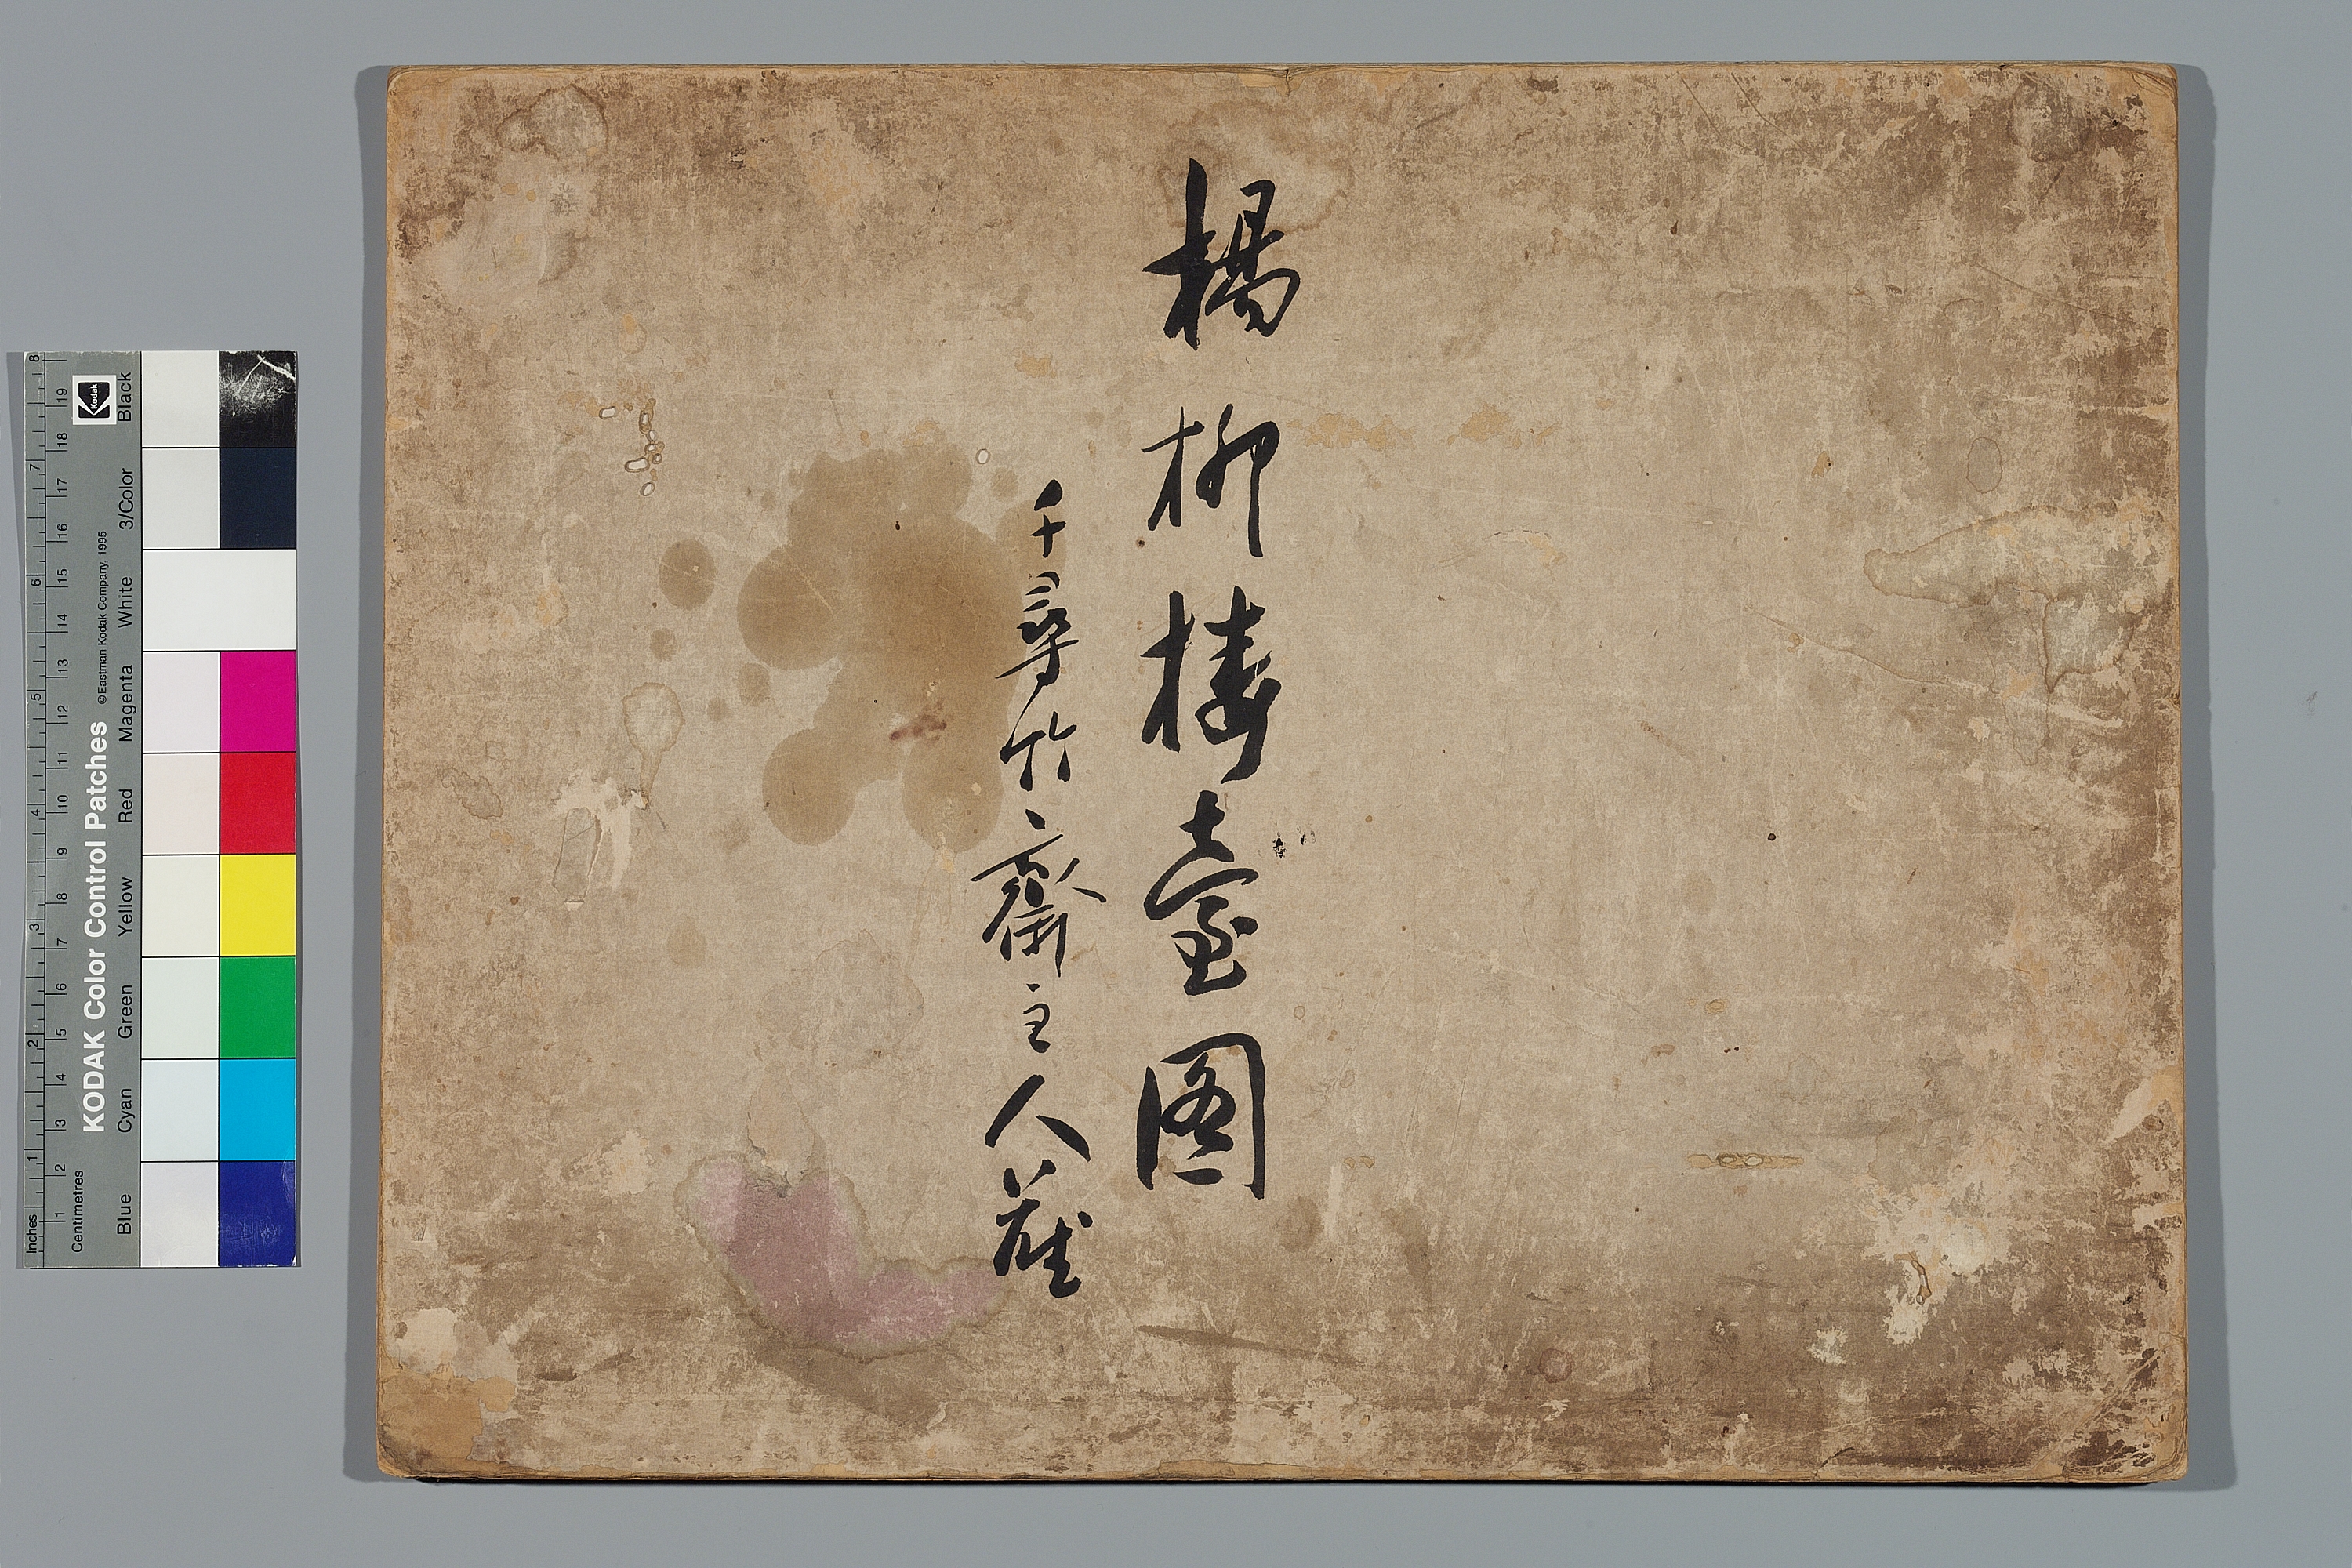 楊柳楼臺圖
千尋竹齋主人藏
KODAK Color Control Patches
©Eastman Kodak Company, 1995
Kodak
Inches 1 2 3 4 5 6 7 8
Centimetres 1 2 3 4 5 6 7 8 9 10 11 12 13 14 15 16 17 18 19
Blue Cyan Green Yellow Red Magenta White 3/Color Black